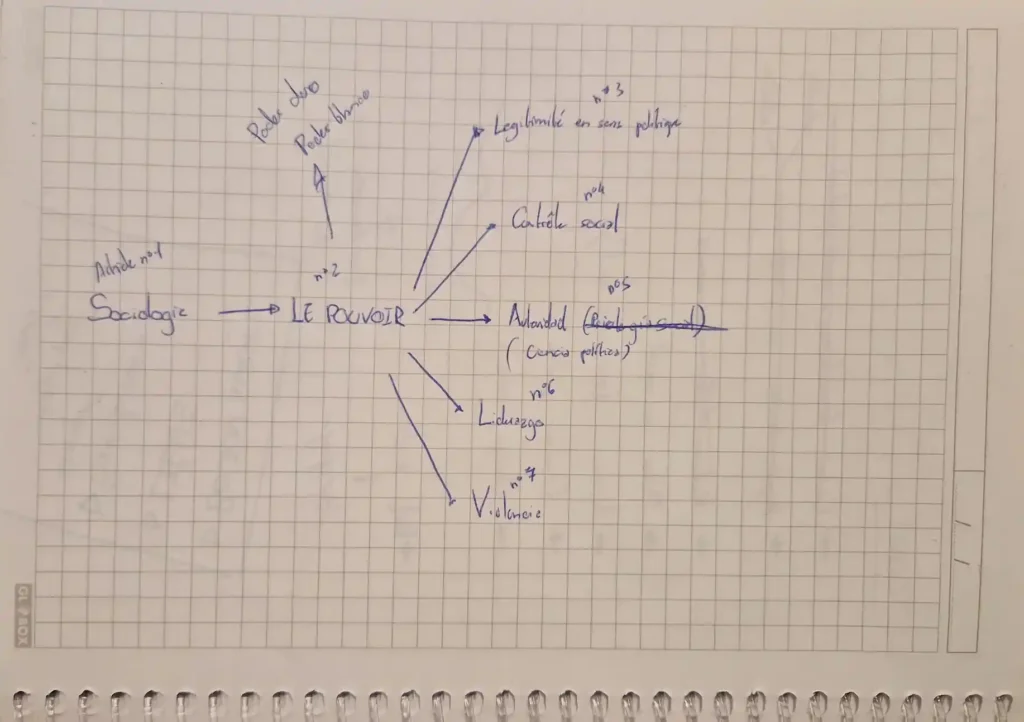 Poder duro
Poder blanco
n°3
Legitimité en sens politique
n°4
Contrôle social
Article n°1
Sociologie
n°2
LE POUVOIR
n°5
Autoridad
(Ciencia política)
n°6
Liderazgo
n°7
Violencia